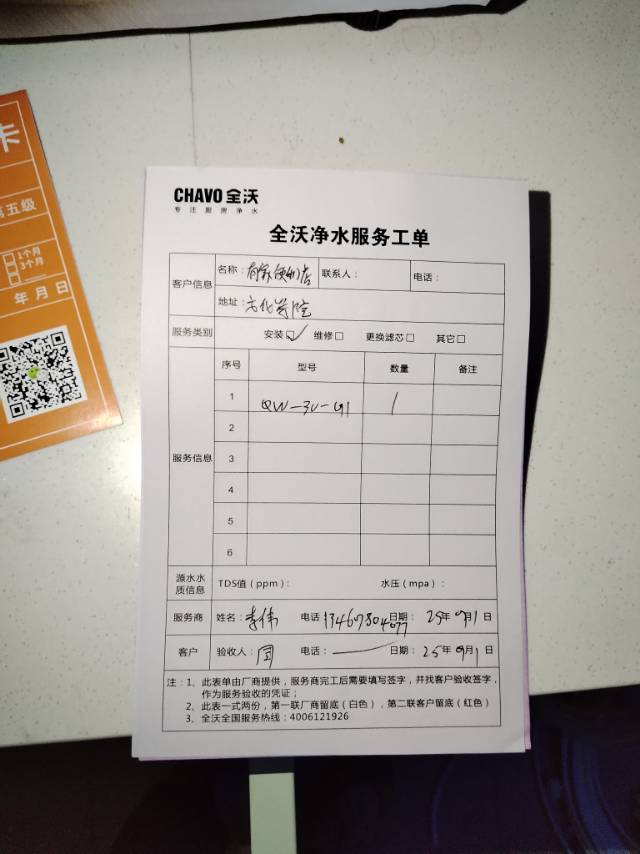 卡
第五级
1个月
3个月
年月日
CHAVO 全沃
专注厨房净水
全沃净水服务工单
客户信息
名称： 便利店 联系人： 电话：
地址： 文化学院
服务类别 安装☑ 维修□ 更换滤芯□ 其它□
服务信息
序号 型号 数量 备注
1 QW-3U-G1 1
2
3
4
5
6
源水水质信息 TDS值（ppm）： 水压（mpa）：
服务商 姓名：李伟 电话 日期：25年9月1日
客户 验收人： 电话：— 日期：25年9月1日
注：1、此表单由厂商提供，服务商完工后需要填写签字，并找客户验收签字，
作为服务验收的凭证；
2、此表一式两份，第一联厂商留底（白色），第二联客户留底（红色）
3、全沃全国服务热线：4006121926